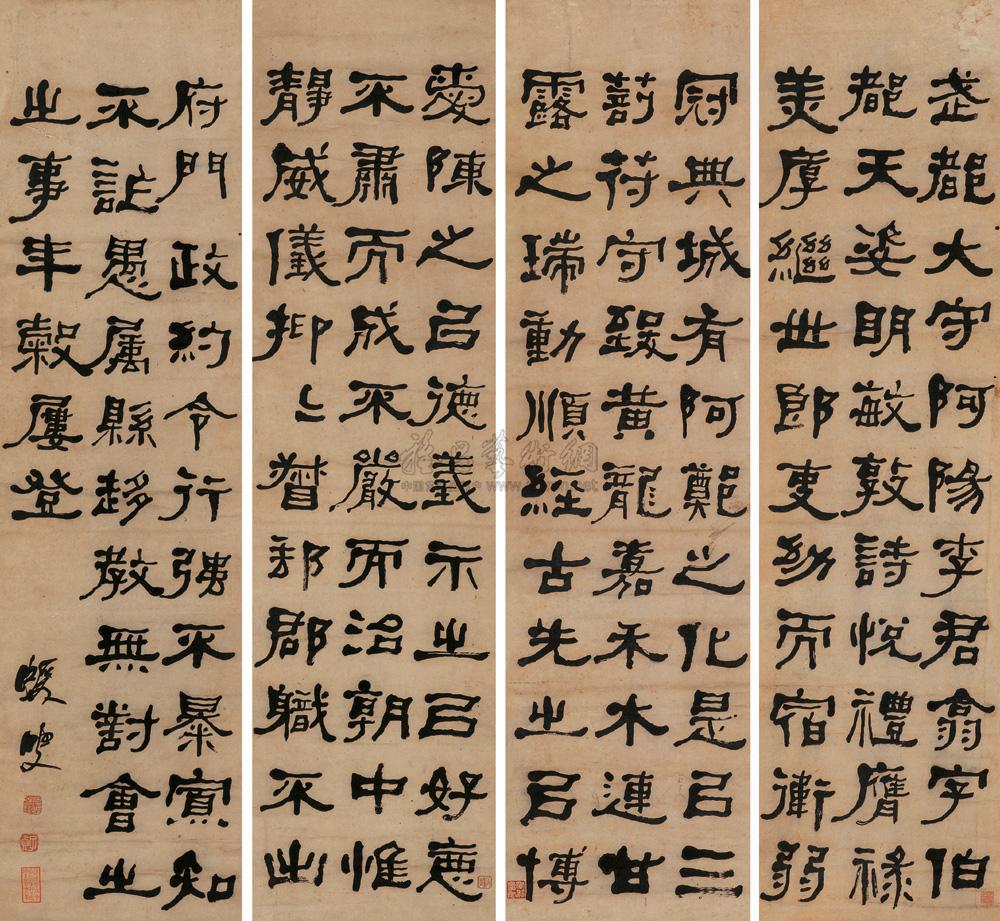 武都大守阿陽李君翕字伯
都天姿明敏敦詩悅禮膺祿
美厚繼世郎吏幼而宿衛弱
冠典城有阿鄭之化是㠯三
莂符守致黃龍嘉禾木連甘
露之瑞動順經古先之㠯博
愛陳之㠯德義示之㠯好惡
不肅而成不嚴而治朝中惟
靜威儀抑〻督郵郡職不出
府門政約令行強不暴寡知
不詐愚屬縣趍教無對會之
之事年穀屢登
蝯叟
雅昌藝術網